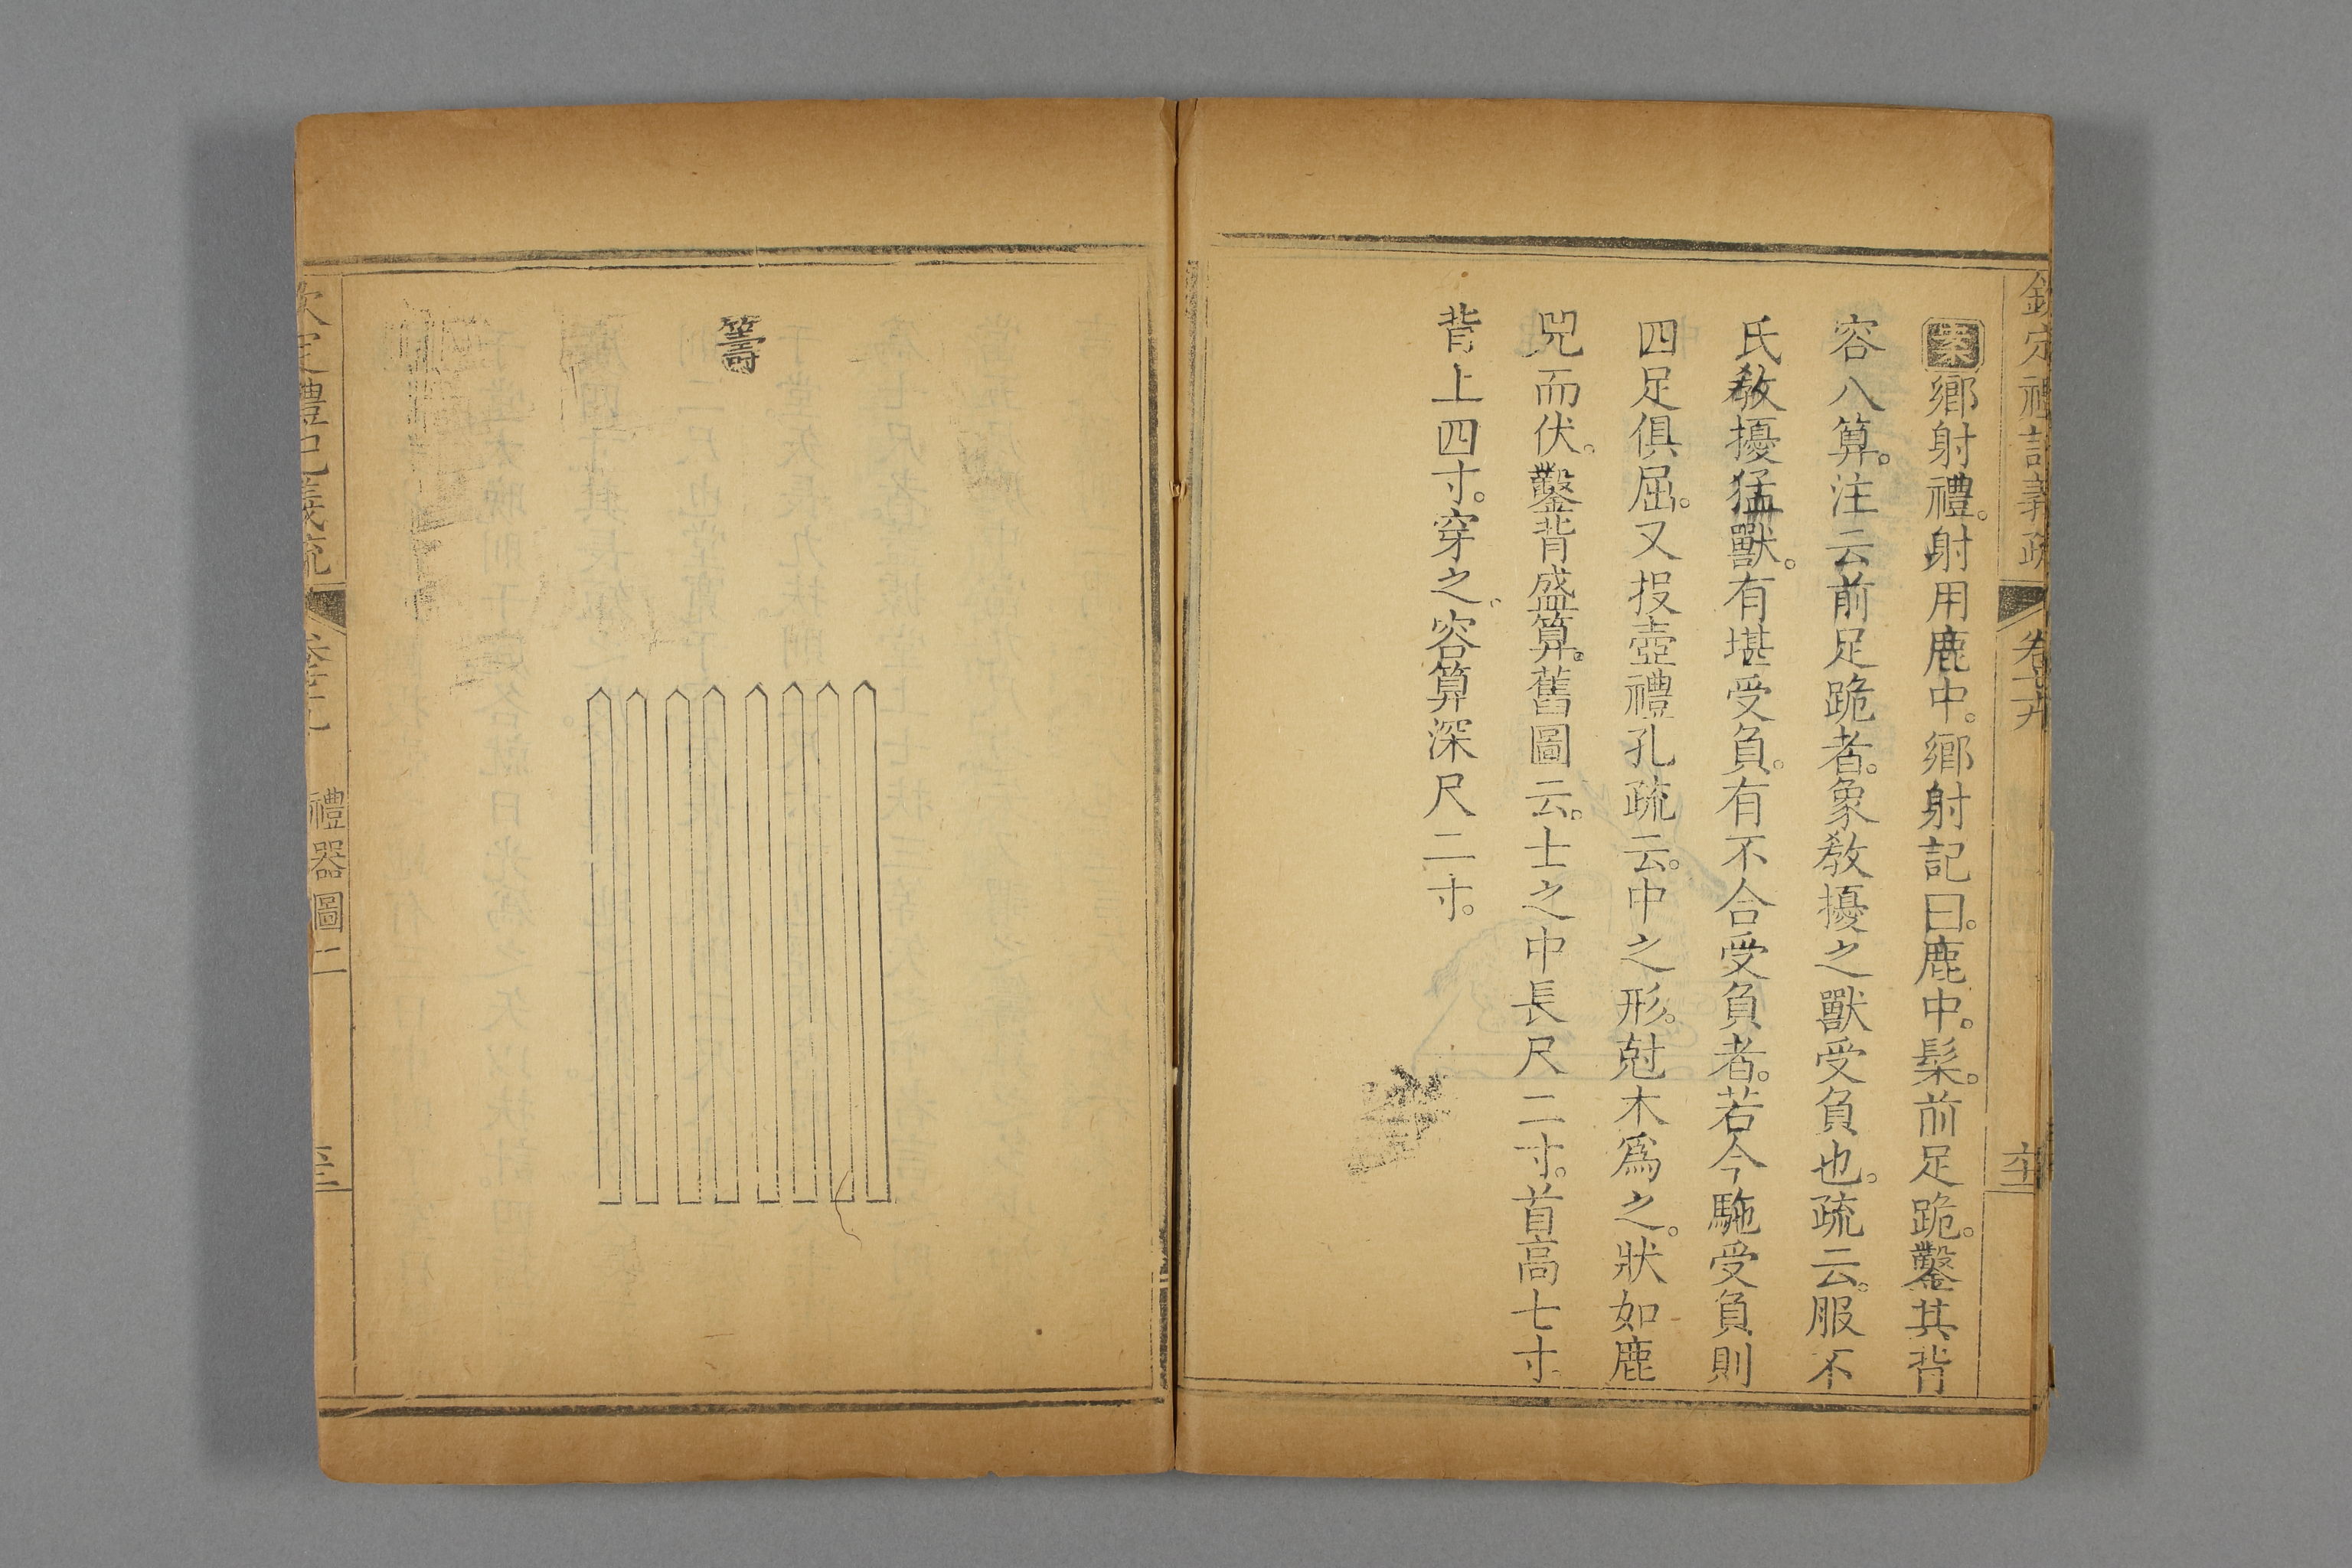 欽定禮記義疏
案鄉射禮。射用鹿中。鄉射記曰。鹿中。髤。前足跪。鑿其背
容八算。注云前足跪者。象敎擾之獸受負也。疏云。服不
氏敎擾猛獸。有堪受負。有不合受負者。若今駞受負則
四足俱屈。又投壺禮孔疏云。中之形。尅木爲之。狀如鹿
兕而伏。鑿背盛算。舊圖云。士之中長尺二寸。首高七寸
背上四寸。穿之。容算深尺二寸。
籌
欽定禮記義疏
禮器圖二